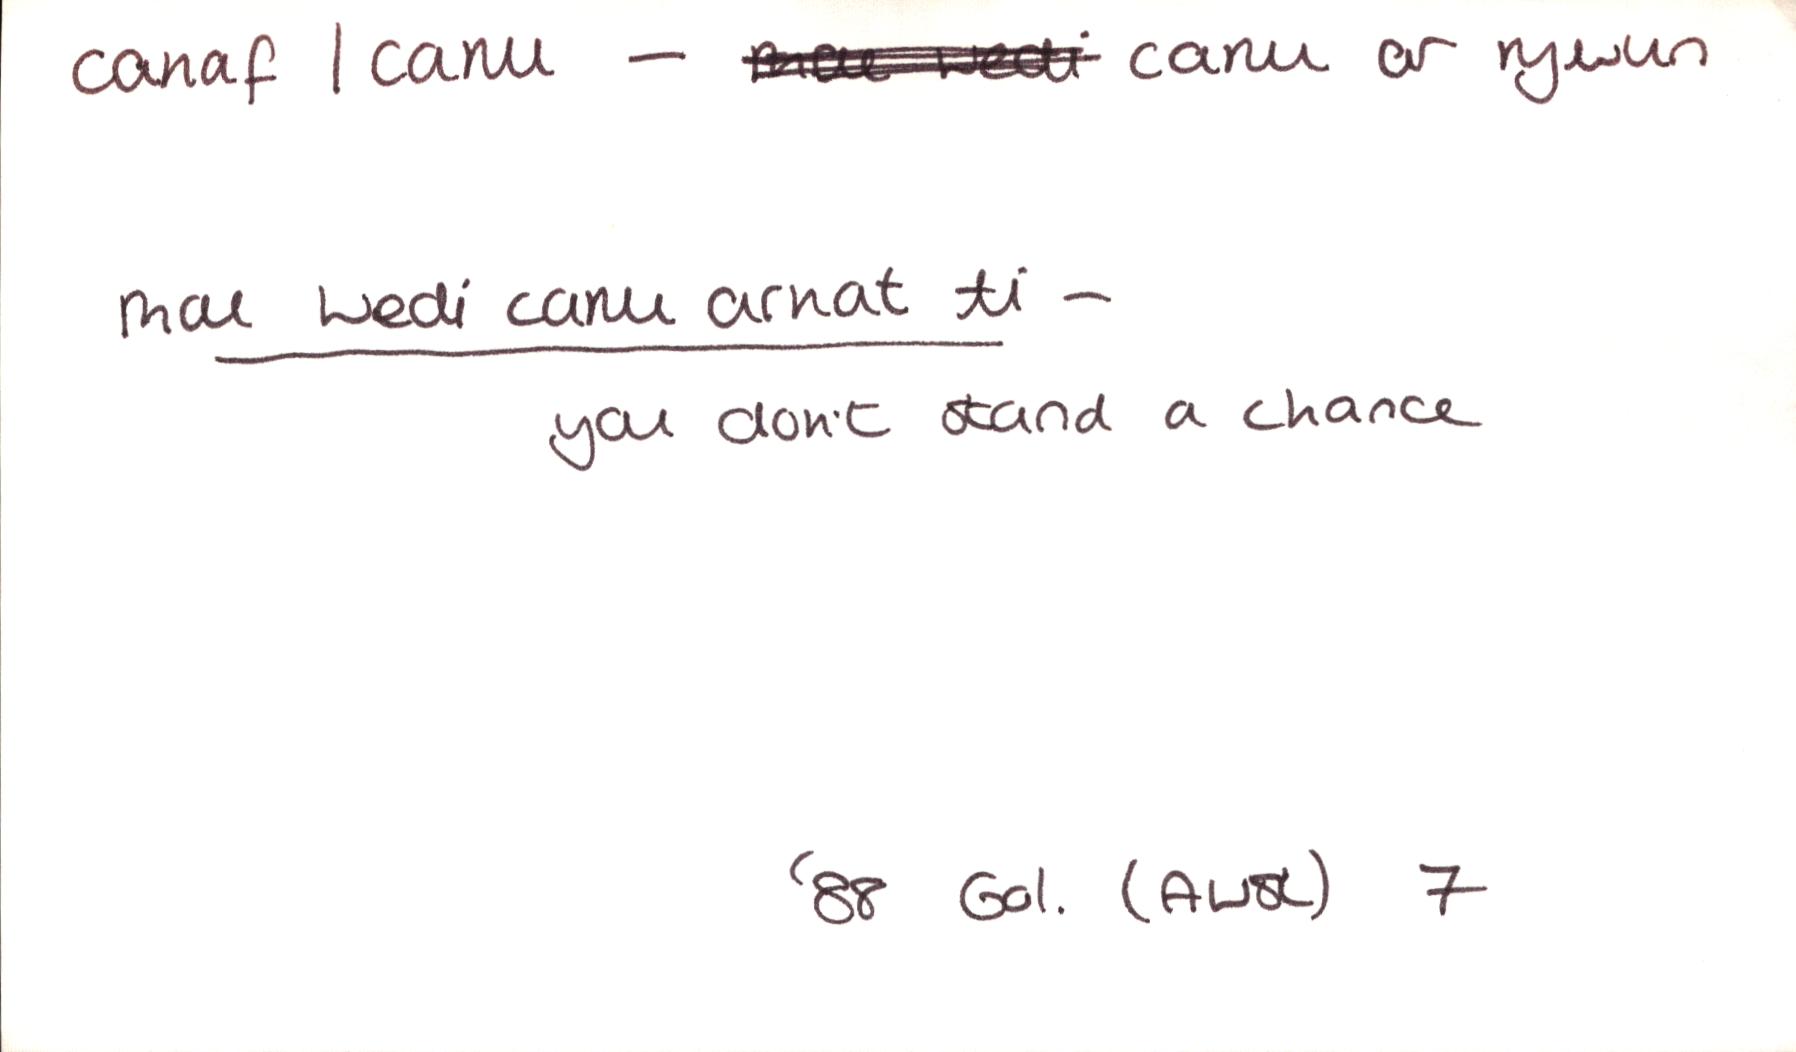 canaf | canu — mae wedi canu ar rywun
mae wedi canu arnat ti —
you don't stand a chance
'88 Gol. (Awst) 7